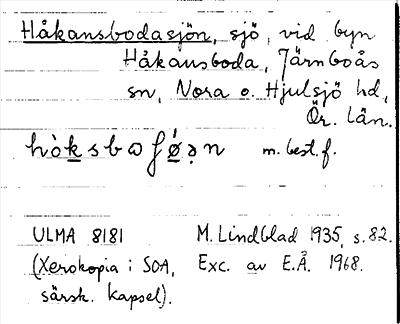 Håkansbodasjön, sjö, vid byn
Håkansboda, Järnboås
sn, Nora o. Hjulsjö hd,
Ör. län.
m. best. f.
ULMA 8181 M. Lindblad 1935, s. 82.
(Xerokopia i SOA, Exc. av E.Å. 1968.
särsk. kapsel).